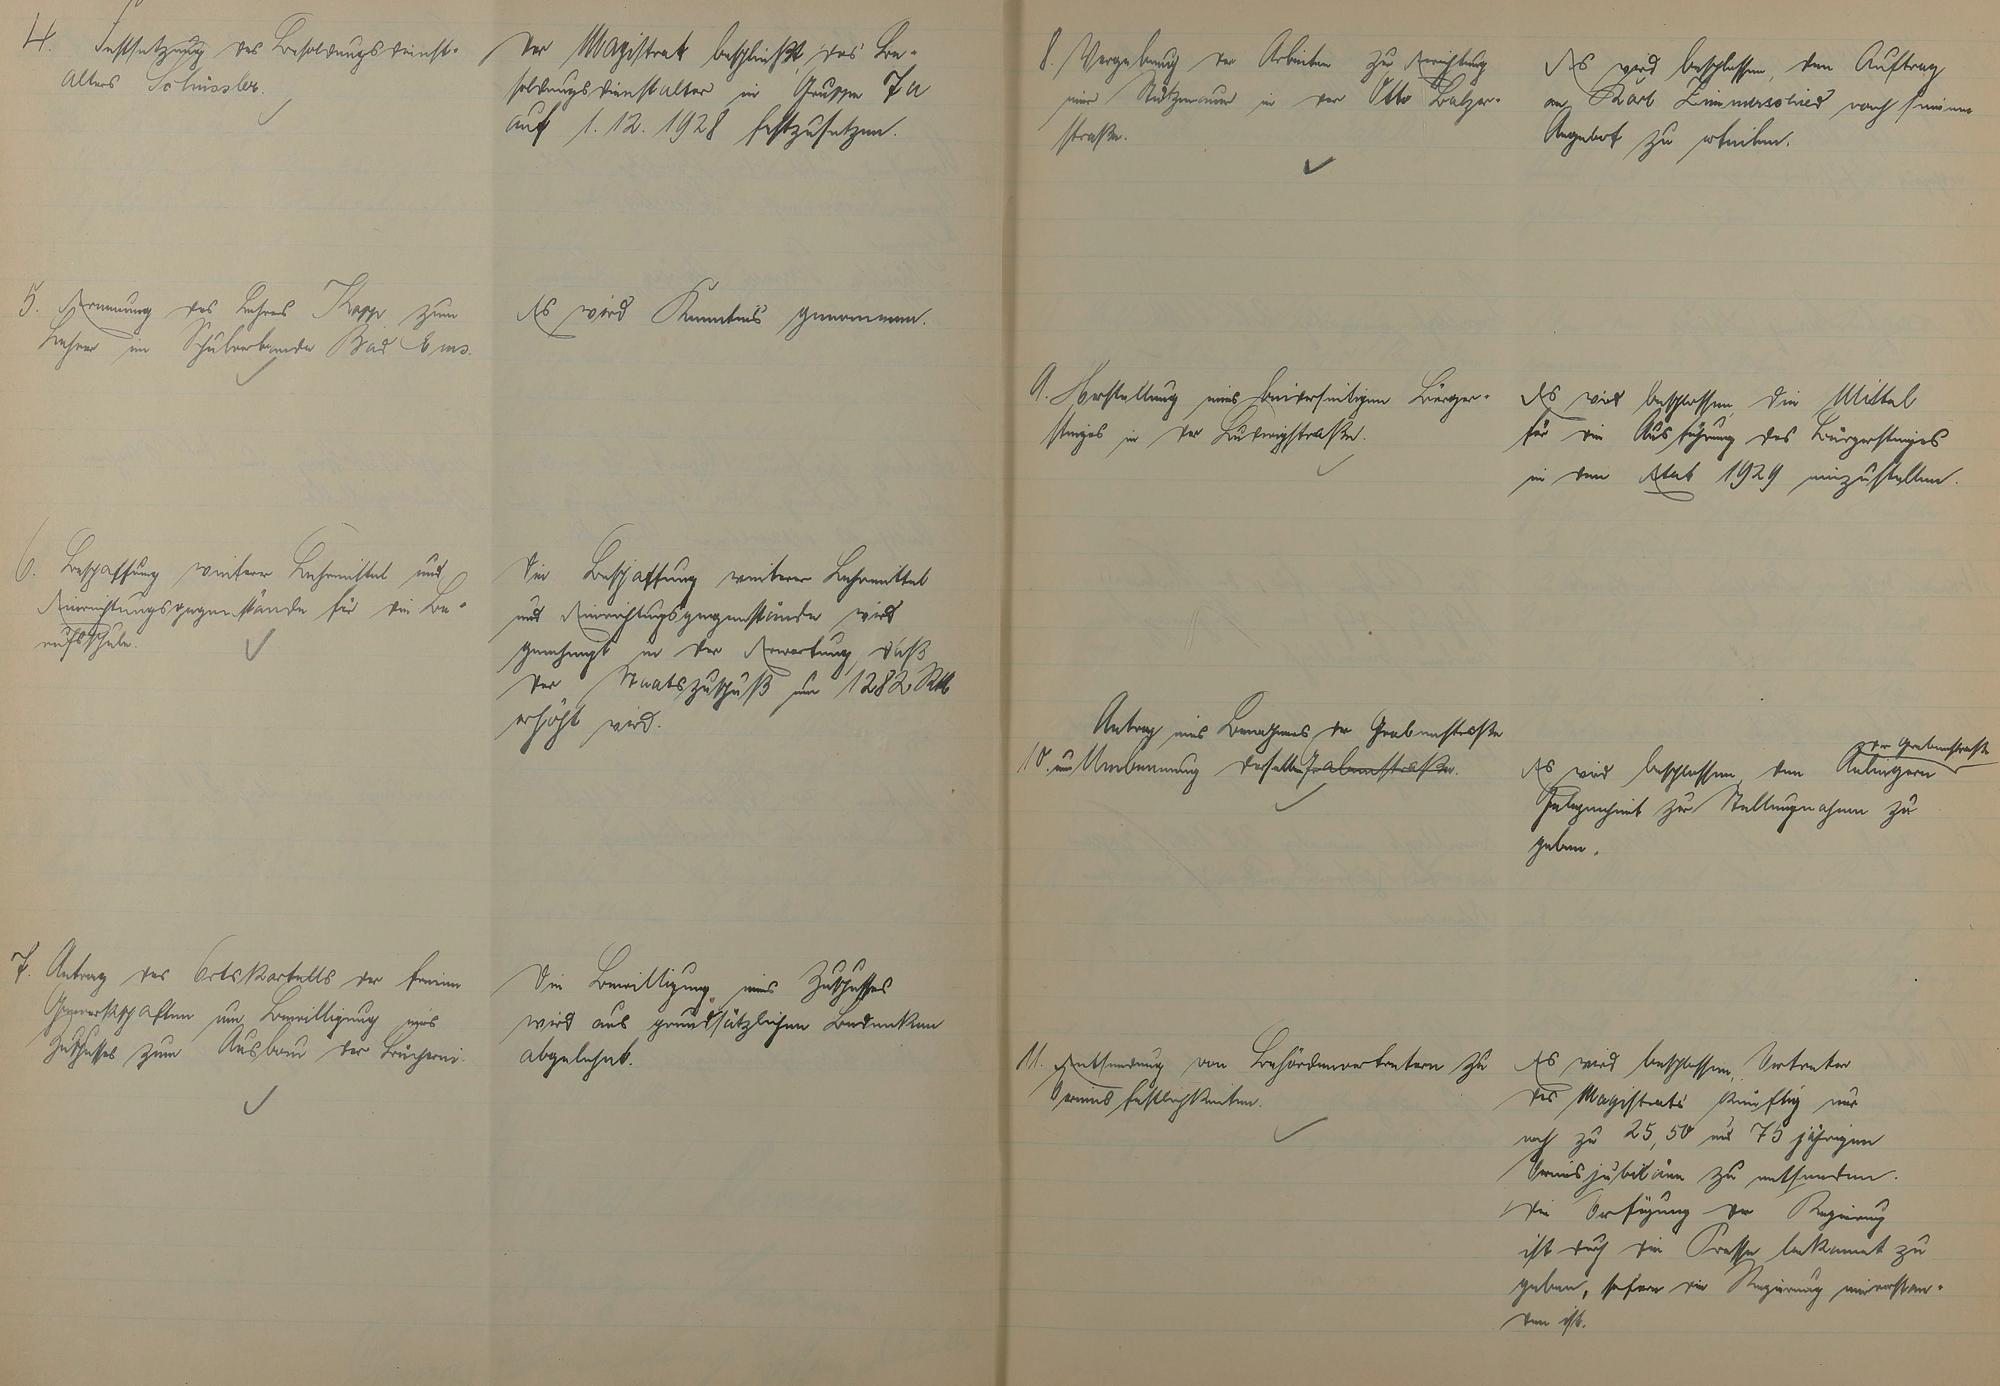 4. Festsetzung des Besoldungsdienst-
alters Schüssler.
Der Magistrat beschließt, das Be-
soldungsdienstalter in Gruppe 7a
auf 1.12.1928 festzusetzen.
5. Ernennung des Lehrers Kapp zum
Lehrer im Schulverbande Bad Ems.
Es wird Kenntnis genommen.
6. Beschaffung weiterer Lehrmittel und
Einrichtungsgegenstände für die Be-
rufsschule.
Die Beschaffung weiterer Lehrmittel
und Einrichtungsgegenstände wird
genehmigt in der Erwartung, daß
der Staatszuschuß um 1282 RM
erhöht wird.
7. Antrag des Ortskartells der freien
Gewerkschaften um Bewilligung eines
Zuschusses zum Ausbau der Bücherei.
Die Bewilligung eines Zuschusses
wird aus grundsätzlichen Bedenken
abgelehnt.
8. Vergebung der Arbeiten zu Errichtung
einer Stützmauer in der Otto Balzer-
straße.
Es wird beschlossen, den Auftrag
an Karl Zimmerschied nach seinem
Angebot zu erteilen.
9. Herstellung eines beiderseitigen Bürger-
steiges in der Ludwigstraße.
Es wird beschlossen, die Mittel
für die Ausführung des Bürgersteiges
in den Etat 1929 einzustellen.
Antrag eines Bewohners der Grabenstraße
10. um Umbenennung derselben Grabenstraße.
der Grabenstraße
Es wird beschlossen, den Anliegern
Gelegenheit zur Stellungnahme zu
geben.
11. Entsendung von Behördenvertretern zu
Vereinsfestlichkeiten.
Es wird beschlossen, Vertreter
des Magistrats künftig nur
noch zu 25, 50 und 75 jährigen
Vereinsjubiläen zu entsenden.
Die Verfügung der Regierung
ist durch die Presse bekannt zu
geben, sofern die Regierung einverstan-
den ist.